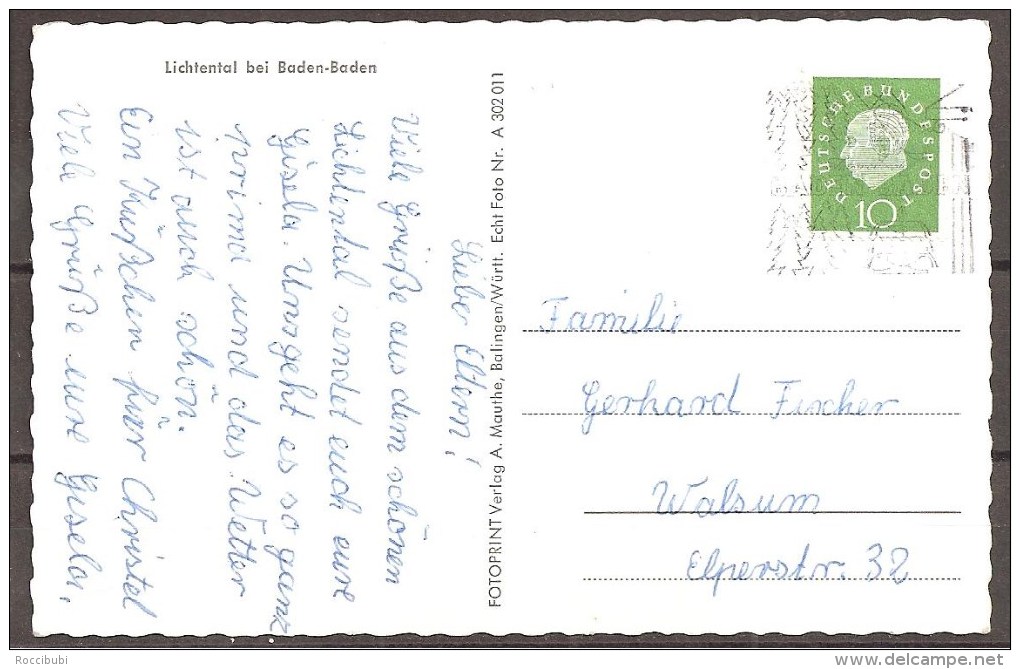 Lichtental bei Baden-Baden
Lieber Eltern!
Viele Grüße aus dem schönen
Lichtental sendet euch eure
Gisela. Uns geht es so ganz
prima und das Wetter
ist auch schön.
Ein Küßchen für Christel
Viele Grüße eure Gisela.
FOTOPRINT Verlag A. Mauthe, Balingen/Württ. Echt Foto Nr. A 302 011
DEUTSCHE BUNDESPOST
10
Familie
Gerhard Fischer
Walsum
Elperstr. 32
Roccibubi
www.delcampe.net